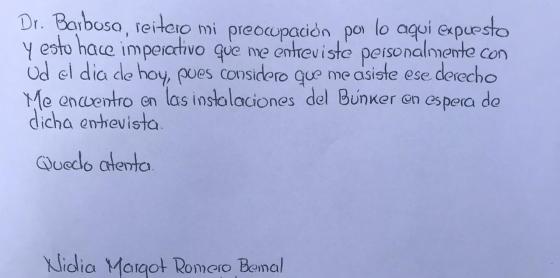 Dr. Barbosa, reitero mi preocupación por lo aqui expuesto
y esto hace imperativo que me entreviste personalmente con
Ud el día de hoy, pues considero que me asiste ese derecho
Me encuentro en las instalaciones del Búnker en espera de
dicha entrevista.
Quedo atenta.
Nidia Margot Romero Bernal